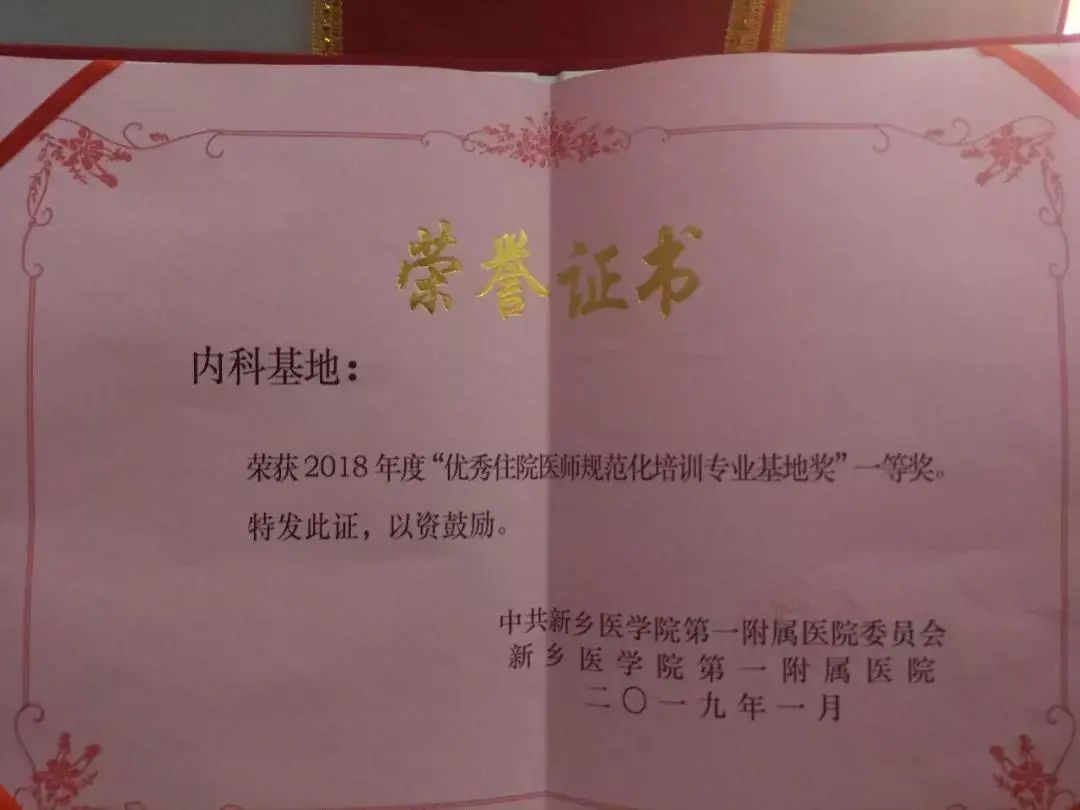 荣誉证书
内科基地：
荣获2018年度“优秀住院医师规范化培训专业基地奖”一等奖。
特发此证，以资鼓励。
中共新乡医学院第一附属医院委员会
新乡医学院第一附属医院
二〇一九年一月